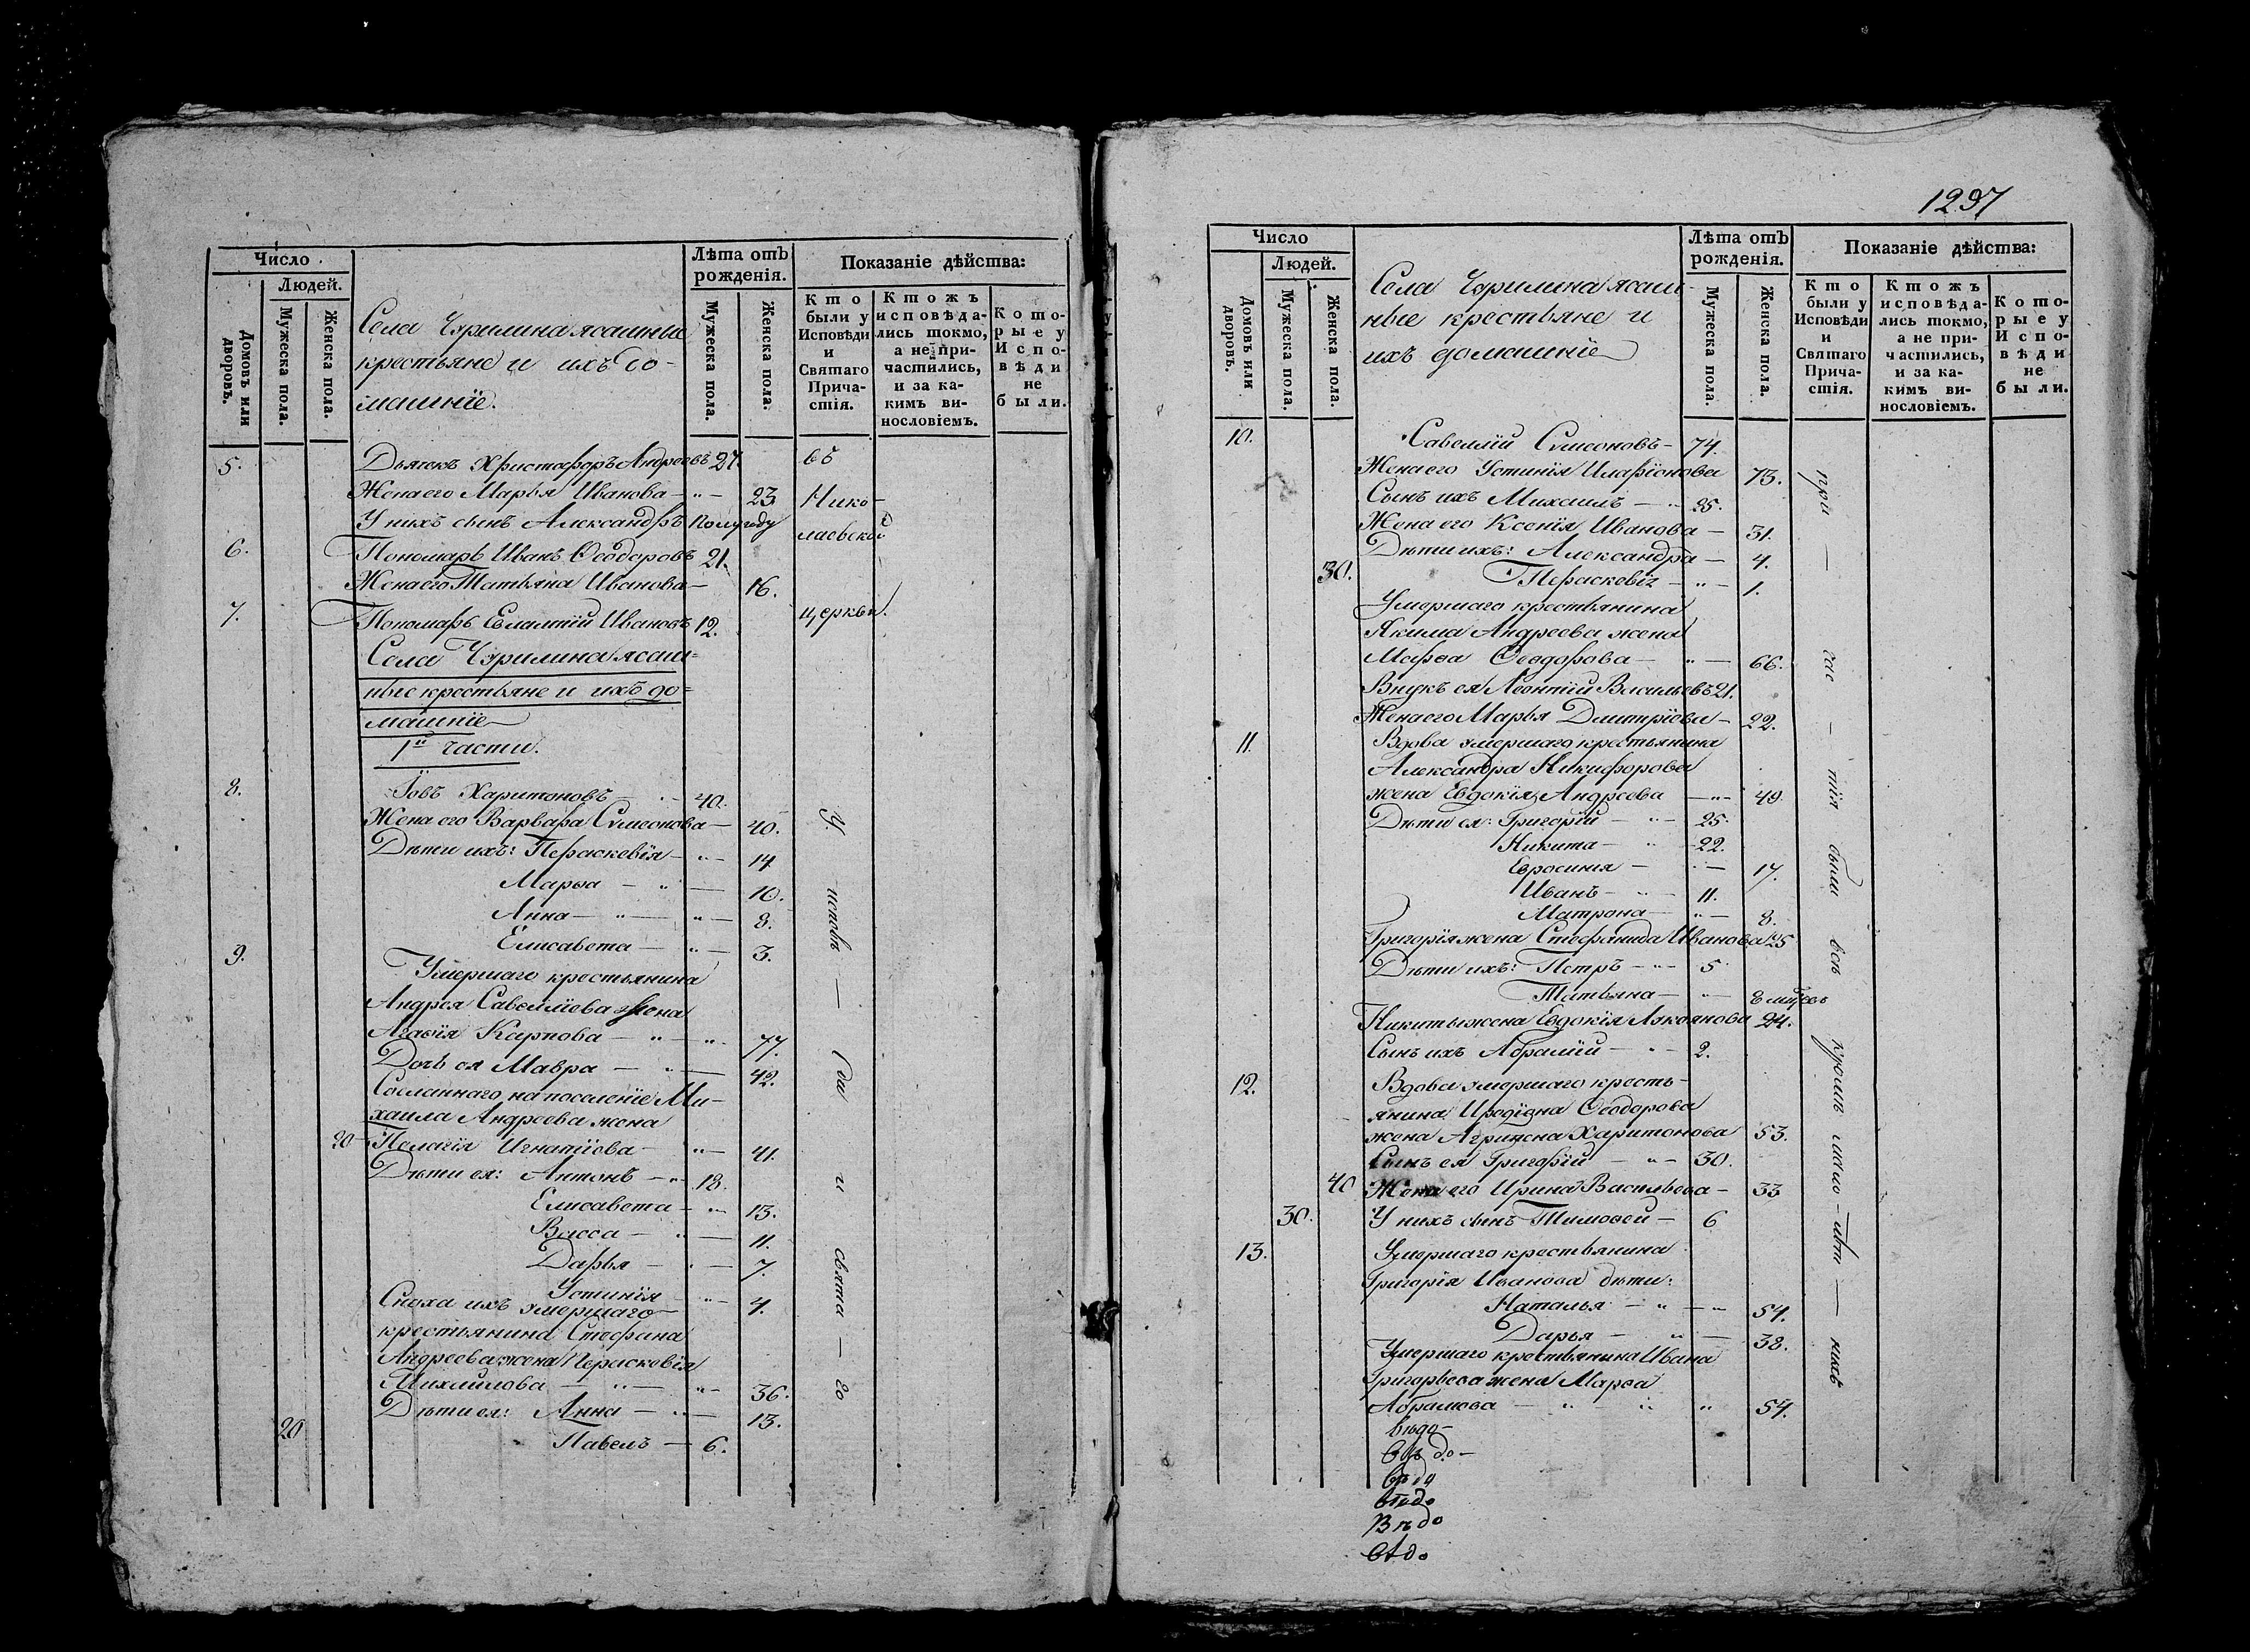 Число
Людей.
Домовъ или дворовъ.
Мужеска пола.
Женска пола.
Села Чурилина ясашные
крестьяне и ихъ до-
машніе.
Лѣта отъ рожденія.
Мужеска пола.
Женска пола.
Показаніе дѣйства:
Кто были у Исповѣди и Святаго Прича- стія.
Ктожъ исповѣда- лись токмо, а не при- частились, и за ка- кимъ ви- нословіемъ.
Кото- рые у Испо- вѣди не были.
5. Дьячекъ Христофоръ Андреевъ 27.
Жена его Марья Иванова — " — 23
У нихъ сынъ Александръ полугоду
6. Пономарь Иванъ Ѳеодоровъ 21.
Жена его Татьяна Иванова — 16.
7. Пономарь Евлампій Ивановъ 12.
въ
Нико-
лаевской
церкви.
Села Чурилина ясаш=
ные крестьяне и ихъ до=
машніе
1й части.
8. Іовъ Харитоновъ — 40.
Жена его Варвара Сѵмеонова — 40.
Дѣти ихъ: Параскевія — " — 14
Марѳа — " — 10.
Анна — " — " — 8.
Елисавета — " — 3.
9. Умершаго крестьянина
Андрея Савелліева жена
Агаѳія Карпова — " — " 77.
Дочь ея Мавра — " — 42.
Сосланнаго на поселеніе Ми-
хаила Андреева жена
20 Пелагія Игнатіева — " — 41.
Дѣти ея: Антонъ — " 18.
Елисавета — " — 13.
Васса — " — 11.
Дарья — " — 7.
Устинія — " — 4.
Сноха ихъ умершаго
крестьянина Стефана
Андреева жена Параскевія
Михайлова — " — " — 36.
Дѣти ея: Анна — " — 13.
20 Павелъ — 6.
У исповѣ — ди и свята — го
1297
Число
Людей.
Домовъ или дворовъ.
Мужеска пола.
Женска пола.
Села Чурилина ясаш
ные крестьяне и
ихъ домашніе
Лѣта отъ рожденія.
Мужеска пола.
Женска пола.
Показаніе дѣйства:
Кто были у Исповѣди и Святаго Прича- стія.
Ктожъ исповѣда- лись токмо, а не при- частились, и за ка- кимъ ви- нословіемъ.
Кото- рые у Испо- вѣди не были.
10. Савеллій Сѵмеоновъ — 74.
Жена его Устинія Иларіонова 73.
Сынъ ихъ Михаилъ — " 35.
Жена его Ксенія Иванова — 31.
Дѣти ихъ: Александра — 4.
30. Параскевія — " — 1.
Умершаго крестьянина
Якима Андреева жена
Марѳа Ѳеодорова — " — 66.
Внукъ ея Леонтій Васильевъ 21.
Жена его Марья Дмитріева — 22.
11. Вдова умершаго крестьянина
Александра Никифорова
жена Евдокія Андреева — " — 49.
Дѣти ея: Григорій — " — 25.
Никита — " — 22.
Евросинія — " — 17.
Иванъ — " — 11.
Матрона — " — 8.
Григорія жена Стефанида Иванова 25
Дѣти ихъ: Петръ — " — 5
Татьяна — " — 8 мцовъ
Никиты жена Евдокія Лукоянова 24.
Сынъ ихъ Абрамій — " — 2.
12. Вдова умершаго кресть-
янина Иродіона Ѳеодорова
жена Агрипена Харитонова 53.
Сынъ ея Григорій — " — 30.
40 Жена его Ирина Васильева — 33
30. У нихъ сынъ Тимоѳей — 6
13. Умершаго крестьянина
Григорія Иванова дѣти:
Наталья — " — " 54.
Дарья — " — 38.
Умершаго крестьянина Ивана
Григорьева жена Марѳа
Абрамова — " " " 54.
при — час — тія были всѣ кромѣ мало — лѣт — нихъ